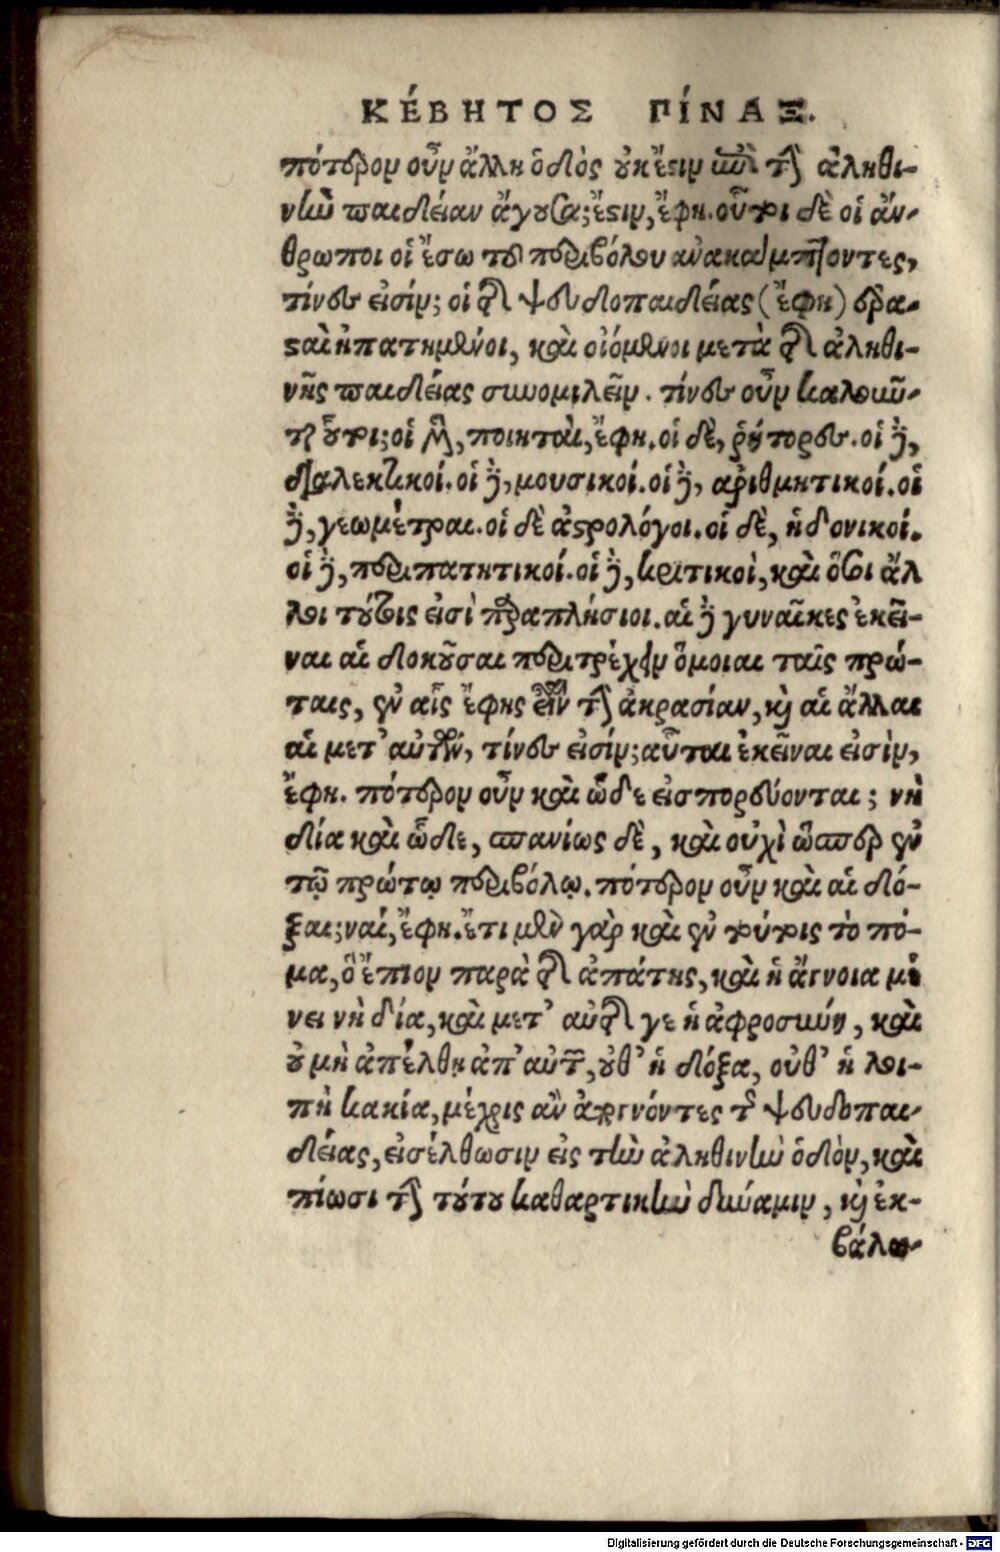 ΚΈΒΗΤΟΣ ΠΊΝΑΞ.
πότερον οὖν ἄλλη ὁδὸς οὐκ ἔστιν ἐπὶ τὴν ἀληθι-
νὴν παιδείαν ἄγουσα; ἔστιν, ἔφη. οὗτοι δὲ οἱ ἄν-
θρωποι οἱ ἔσω τοῦ περιβόλου ἀνακάμπτοντες,
τίνες εἰσίν; οἱ τῆς ψευδοπαιδείας (ἔφη) ἐρα-
σταὶ ἠπατημένοι, καὶ οἰόμενοι μετὰ τῆς ἀληθι-
νῆς παιδείας συνομιλεῖν. τίνες οὖν καλοῦν-
ται οὗτοι; οἱ μὲν, ποιηταὶ, ἔφη. οἱ δὲ, ῥήτορες. οἱ δὲ,
διαλεκτικοί. οἱ δὲ, μουσικοί. οἱ δὲ, ἀριθμητικοί. οἱ
δὲ, γεωμέτραι. οἱ δὲ ἀστρολόγοι. οἱ δὲ, ἡδονικοί.
οἱ δὲ, περιπατητικοί. οἱ δὲ, κριτικοὶ, καὶ ὅσοι ἄλ
λοι τούτοις εἰσὶ παραπλήσιοι. αἱ δὲ γυναῖκες ἐκεῖ-
ναι αἱ δοκοῦσαι περιτρέχειν ὅμοιαι ταῖς πρώ-
ταις, ἐν αἷς ἔφης εἶναι τὴν ἀκρασίαν, καὶ αἱ ἄλλαι
αἱ μετ' αὐτῶν, τίνες εἰσίν; αὗται ἐκεῖναι εἰσὶν,
ἔφη. πότερον οὖν καὶ ὧδε εἰσπορεύονται; νὴ
δία καὶ ὧδε, σπανίως δὲ, καὶ οὐχὶ ὥσπερ ἐν
τῷ πρώτῳ περιβόλῳ. πότερον οὖν καὶ αἱ δό-
ξαι; ναί, ἔφη. ἔτι μὲν γὰρ καὶ ἐν τούτοις τὸ πό-
μα, ὃ ἔπιον παρὰ τῆς ἀπάτης, καὶ ἡ ἄγνοια μέ
νει νὴ δία, καὶ μετ' αὐτῆς γε ἡ ἀφροσύνη, καὶ
οὐ μὴ ἀπέλθῃ ἀπ' αὐτῶν, οὔθ' ἡ δόξα, οὐθ' ἡ λοι-
πὴ κακία, μέχρις ἂν ἀπογνόντες τῆς ψευδοπαι-
δείας, εἰσέλθωσιν εἰς τὴν ἀληθινὴν ὁδὸν, καὶ
πίωσι τὴν τούτου καθαρτικὴν δύναμιν, καὶ ἐκ-
βάλω-
Digitalisierung gefördert durch die Deutsche Forschungsgemeinschaft - DFG